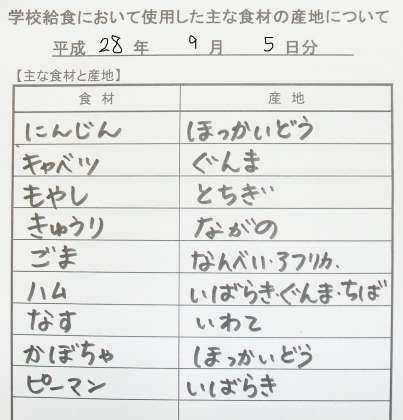 学校給食において使用した主な食材の産地について
平成 28 年 9 月 5 日分
【主な食材と産地】
食材 産地
にんじん ほっかいどう
キャベツ ぐんま
もやし とちぎ
きゅうり ながの
ごま なんべい・アフリカ、
ハム いばらき・ぐんま・ちば
なす いわて
かぼちゃ ほっかいどう
ピーマン いばらき